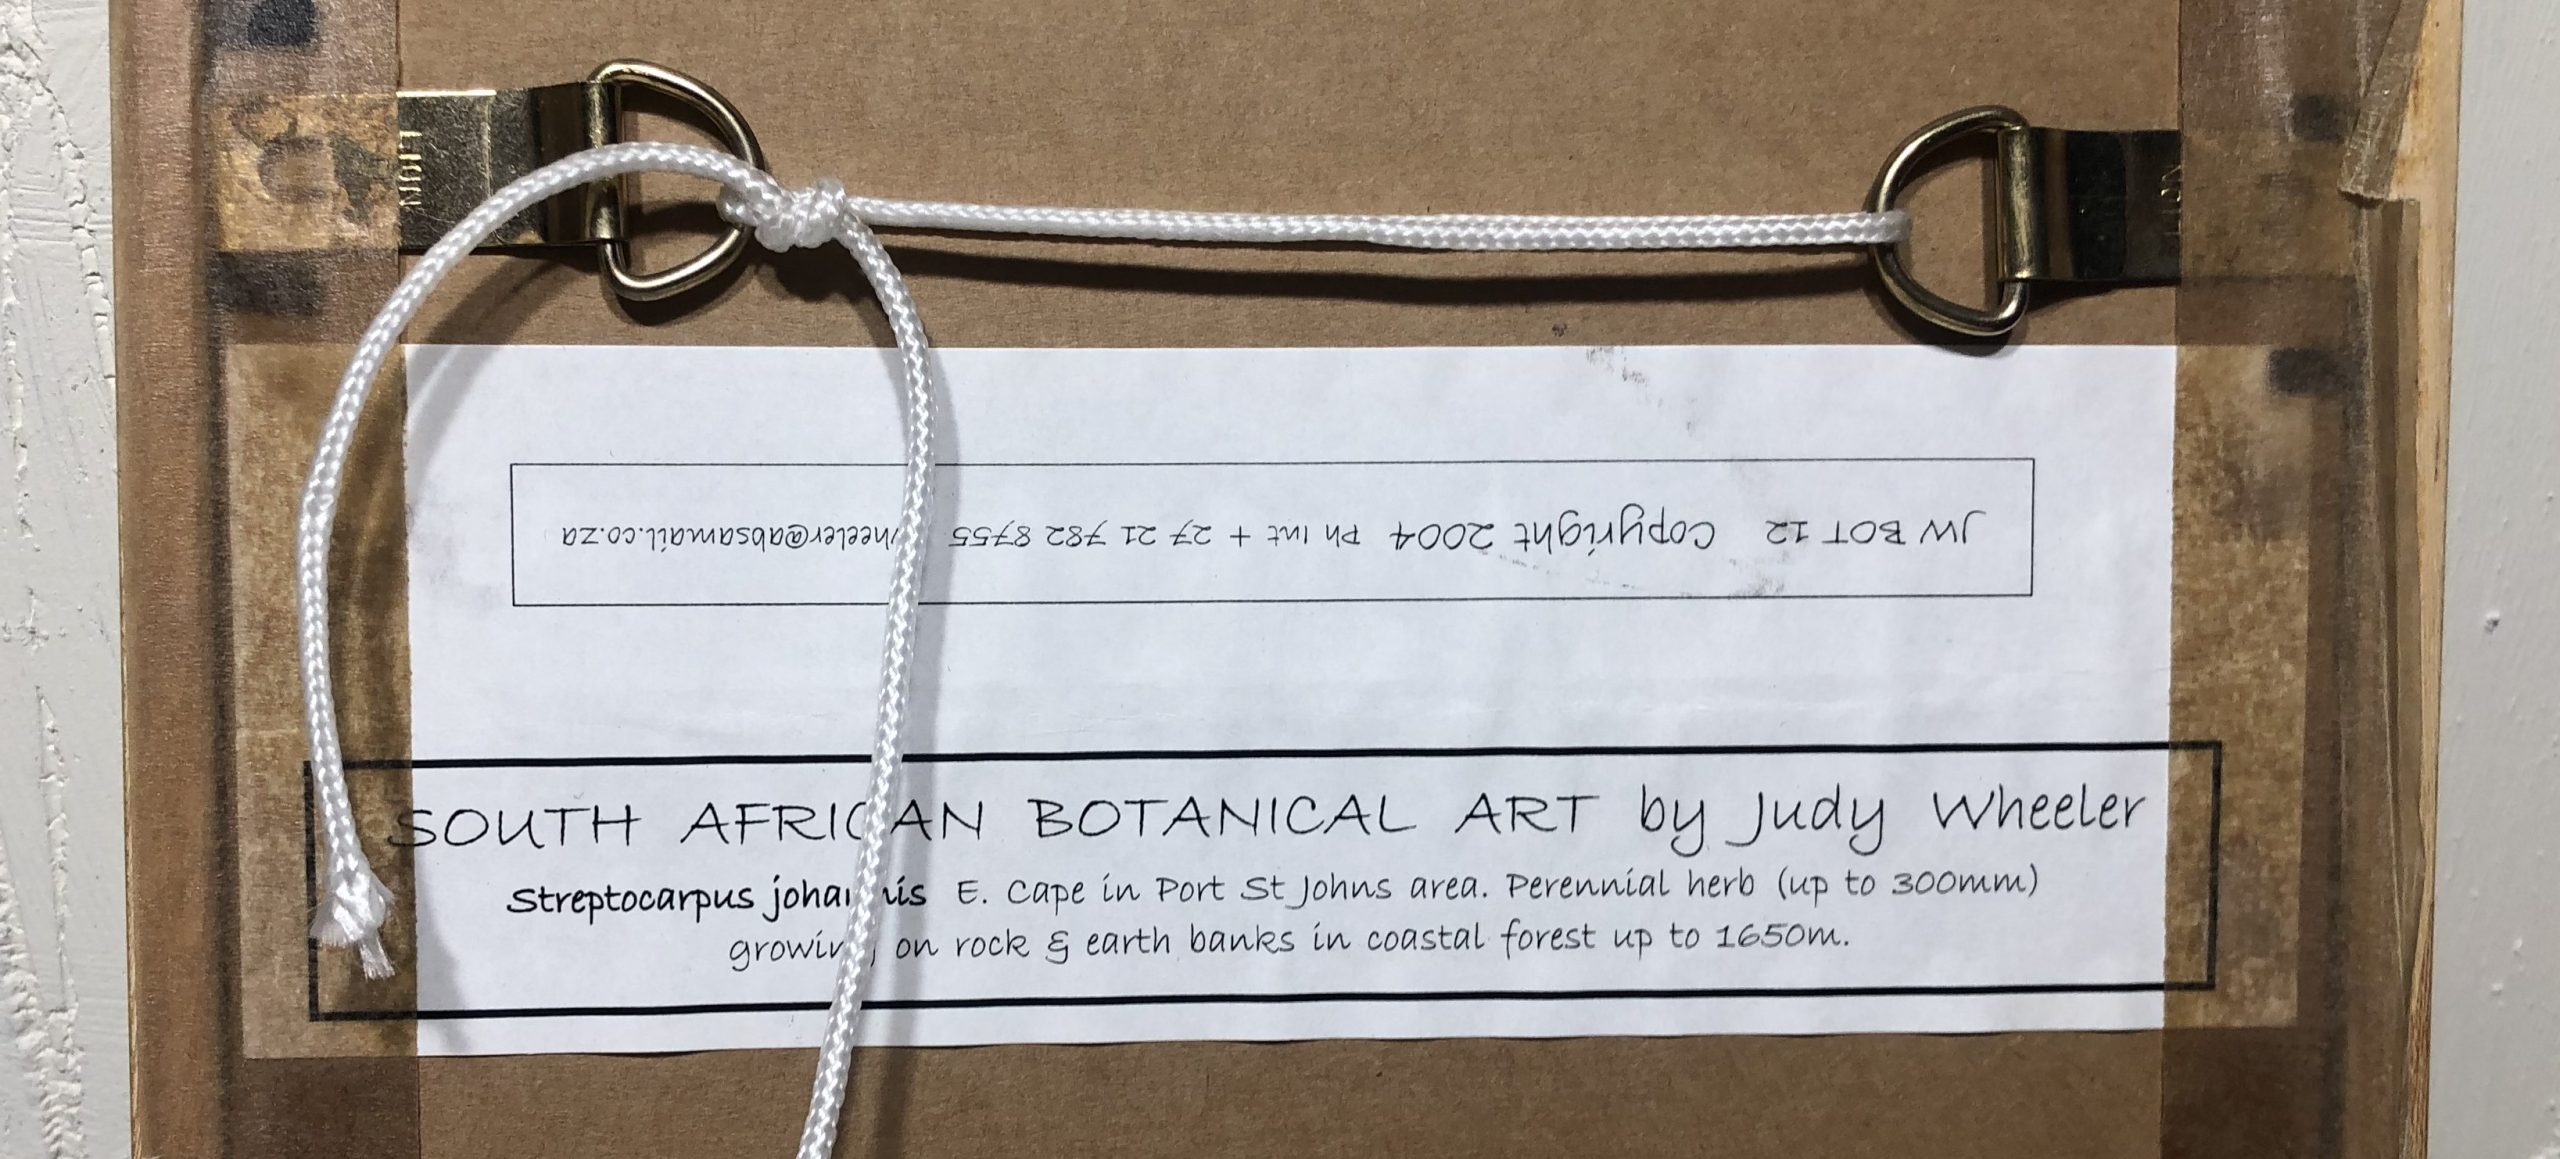 LION
JW BOT 12 Copyright 2004 Ph Int + 27 21 782 8755 heeler@absamail.co.za
SOUTH AFRICAN BOTANICAL ART by Judy Wheeler
Streptocarpus johannis E. Cape in Port St Johns area. Perennial herb (up to 300mm)
growing on rock & earth banks in coastal forest up to 1650m.